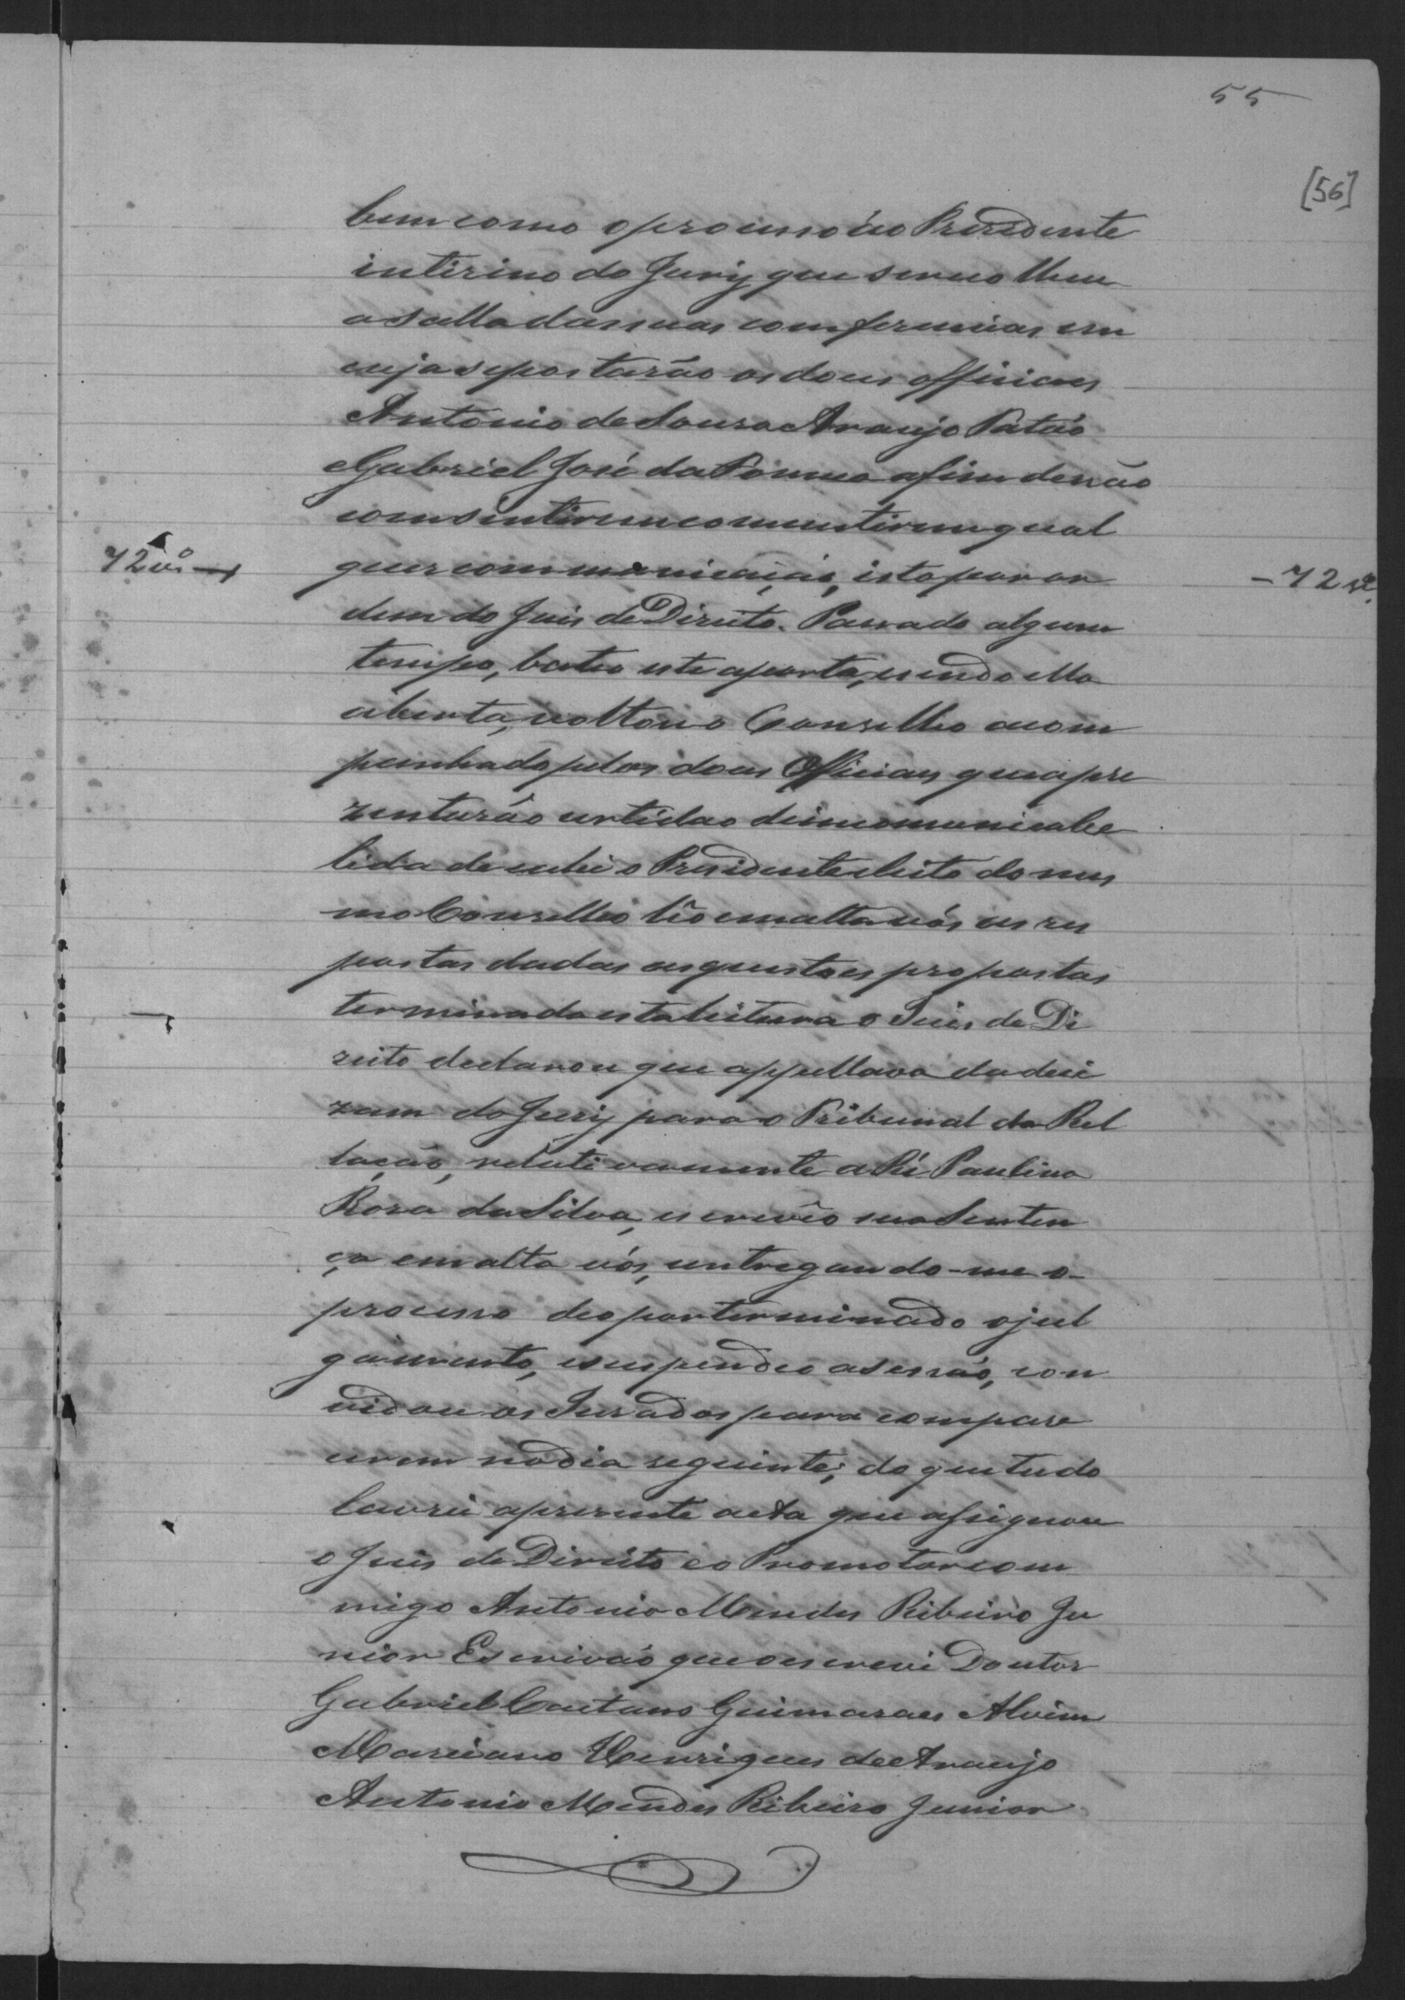 55
[56]
bem como o processo ao Presidente
interino do Jury que se recolheu
a salla das suas comferencias em
cuja se postarão os dous officiaes
Antonio de Sousa Araujo Patáo
Gabriel José da afim de não
comsintirem comuntirem qual
72vo
quer communicação, isto por or
-72 vo.
dem do Juis de Direito. Passado algum
tempo, bateo este a porta, e sendo ella
aberta, voltou o Conselho acom
panhado pelos dous Officiaes que apre
zentarão certidao de incomunicabe
lidade e ahi o Presidente eleito do mes
mo Conselho lêo em alta vós as res
postas dadas as questoes propostas
terminada esta leitura o Juis de Di
reito declarou que appellava da deci
zam do Jury para o Tribunal da Rel
lação, relativamente a Ré Paulina
Rosa da Silva, e escrevêo sua Senten
ça em alta vós, entregando-me o
processo deo por terminado o jul
gamento, e suspendeo a sessão, con
vidou os Jurados para compare
cerem no dia seguinte; do que tudo
lavrei a presente acta que assignou
o Juis de Direito e o Promotor com
migo Antonio Mendes Ribeiro Ju
nior Escrivão que o escrevi Doutor
Gabriel Caetano Guimaraes Alvim
Marciano Henriques de Araujo
Antonio Mendes Ribeiro Junior